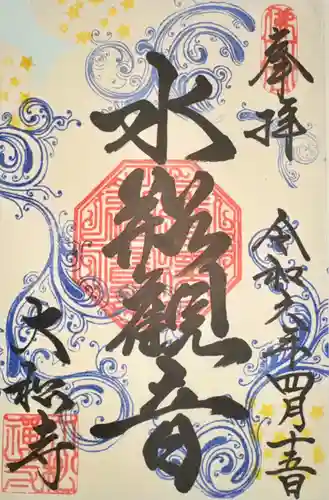 奉拝
令和六年四月十五日
水観音
大松寺